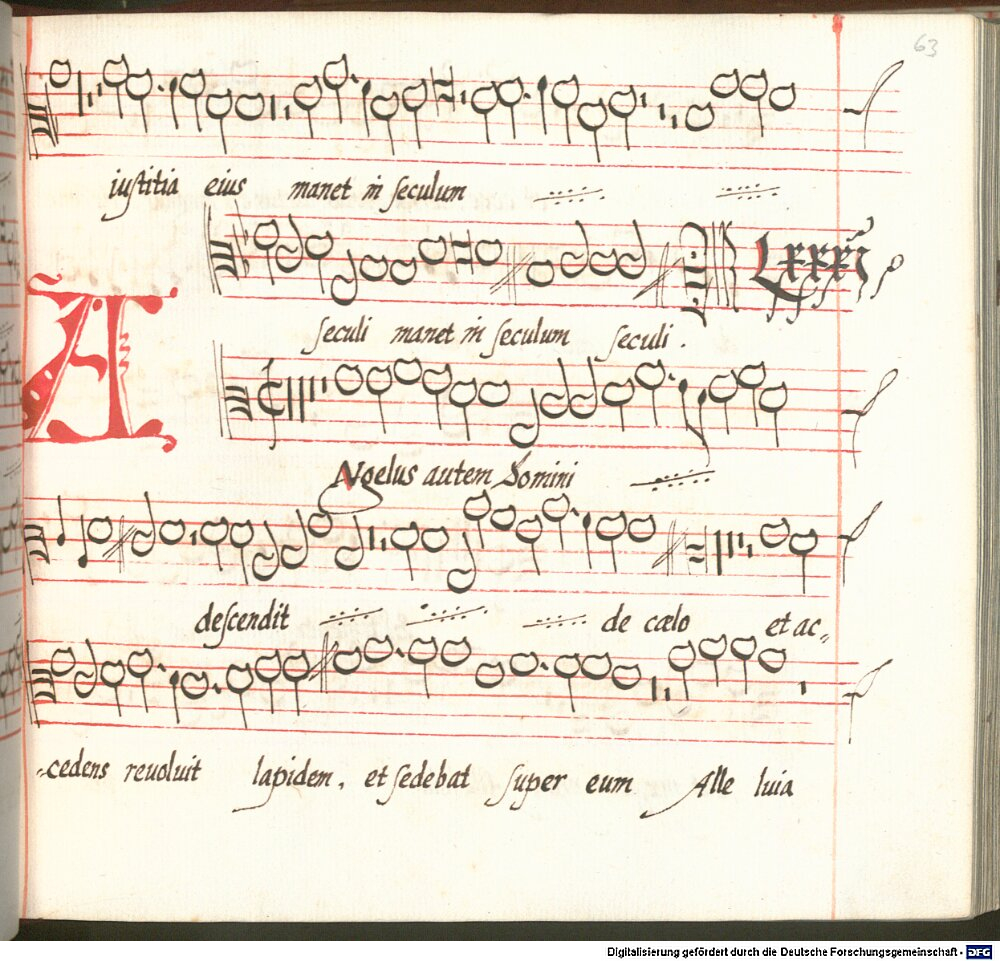 63
iustitia eius manet in seculum
Lxxxi
seculi manet in seculum seculi.
A
Ngelus autem Domini
descendit de cælo et ac„
-cedens reuoluit lapidem, et sedebat super eum Alle luia
Digitalisierung gefördert durch die Deutsche Forschungsgemeinschaft - DFG